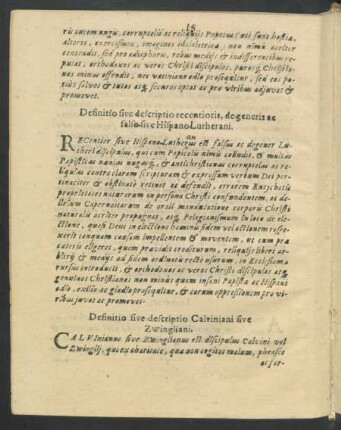 16
ris autem nugis, corruptelis ac reliquiis Papisticis (ut sunt hostia,
altaria, exorcismus, imagines idololatricæ) non nimis acriter
contendit, sed pro adiaphoris, rebus medijs et indifferentibus re-
putat, orthodoxos ac veros Christi discipulos, purosq; Christia-
nos minus offendit, nec vatiniano odio prosequitur, sed eos po-
tius salvos & tutos atq; securos optat ac pro viribus adjuvat &
promovet.
Definitio sive descriptio recentioris, degeneris ac
falso sive Hispano-Lutherani.
RECentior sive Hispano-Lutheranus est falsus ac degener Lu-
theri discipulus, qui cum Papicolis nimis colludit, & multas
Papisticas nænias nugasq; & antichristianas corruptelas ac re-
liquias contra claram scripturam & expressum verbum Dei per-
tinaciter & obstinate retinet ac defendit, errorem Eutychetis
proprietates naturarum in persona Christi confundentem, ac do-
ctrinam Capernaitarum de orali manducatione corporis Christi
naturalis acriter propugnat, atq; Pelagianismum in loco de ele-
ctione, quasi Deus in electione hominis fidem vel actionem respe-
xerit tanquam causam impellentem & moventem, ut cum præ
cæteris eligeret, quem prævidit crediturum, reliquisq; liberi ar-
bitrij & medijs ad fidem ordinatis recte usurum, in Ecclesiam
rursus introducit, & orthodoxos ac veros Christi discipulos atq;
genuinos Christianos non minus quam insani Papistæ ac Hispani
odio, exilio ac gladio prosequitur, & eorum oppressionem pro vi-
ribus juvat ac promovet.
Definitio sive descriptio Calviniani sive
Zwingliani.
CALVInianus sive Zwinglianus est discipulus Calvini vel
Zwinglij, qui ex charitate, quæ non cogitat malum, phrases
ac for-